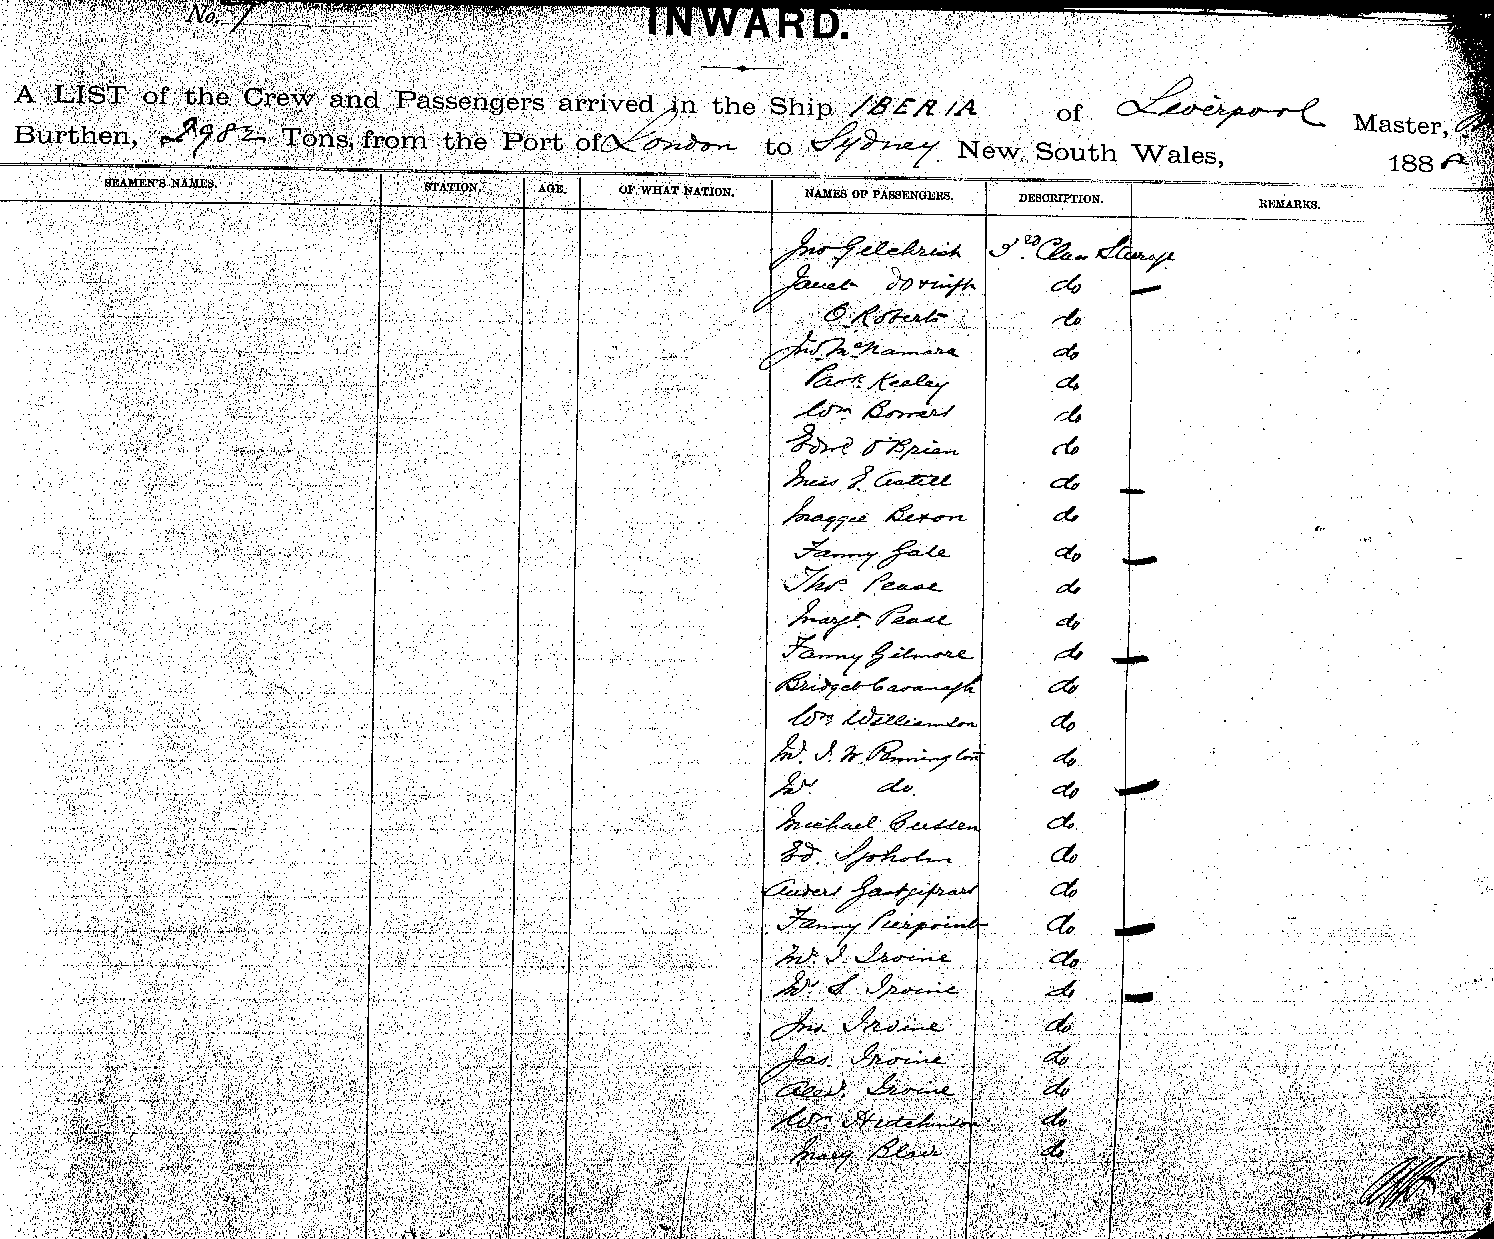 No. 7
INWARD.
A LIST of the Crew and Passengers arrived in the Ship IBERIA of Liverpool Master,
Burthen, 2982 Tons, from the Port of London to Sydney New South Wales, 188
SEAMEN'S NAMES. STATION. AGE. OF WHAT NATION. NAMES OF PASSENGERS. DESCRIPTION. REMARKS.
Jno Gilchrist 3rd Class Steerage
Janet do do
O. Roberts do
Jno McNamara do
Patk Kealey do
Wm Bowers do
Edwd O'Brien do
Miss E. Astill do
Maggie Bexon do
Fanny Gale do
Thos. Pease do
Margt. Pease do
Fanny Gilmore do
Bridget Cavanagh do
Wm Williamson do
Mr. J. W. Pennington do
Mrs do. do
Michael Cussen do
Ed. Sjoholm do
Anders do
Fanny Pierpoint do
Mr. J. Irvine do
Mrs S. Irvine do
Jno. Irvine do
Jas. Irvine do
Alexr. Irvine do
Wm Hutchinson do
Mary Blair do